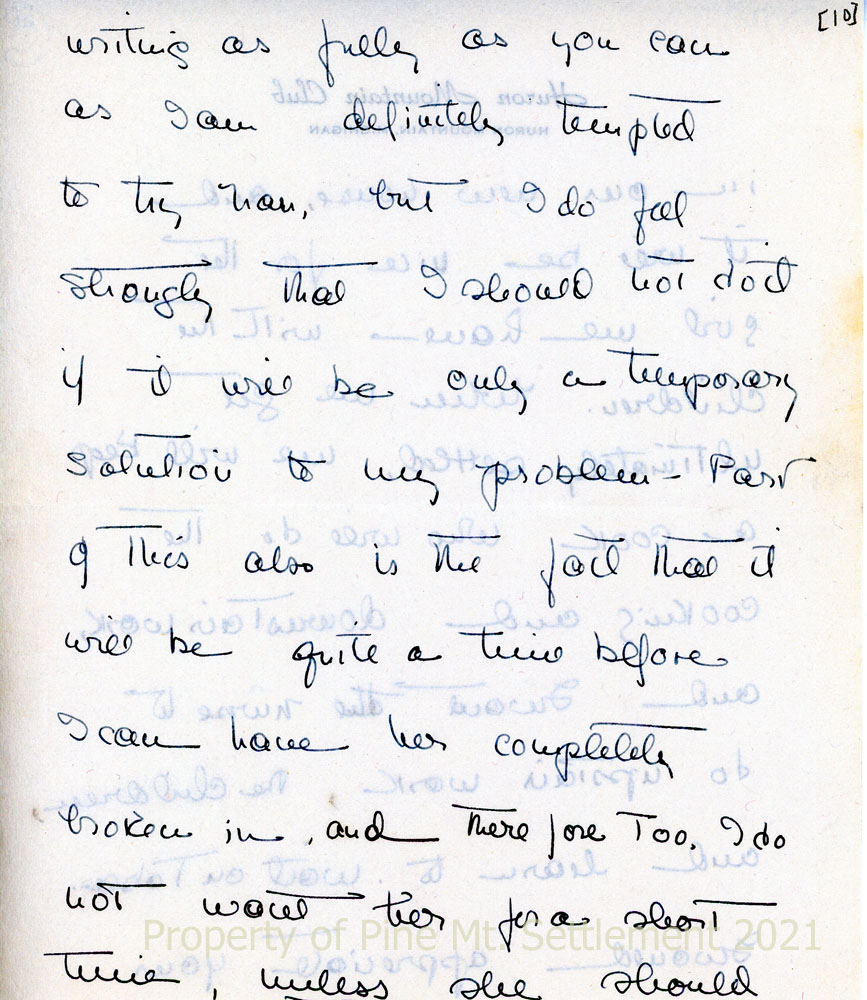 [10]
writing as fully as you can
as I am definitely tempted
to try Nan, but I do feel
strongly that I should not do it
if it will be only a temporary
solution to my problem - Part
of this also is the fact that it
will be quite a time before
I can have her completely
broken in, and therefore too, I do
not want her for a short
time, unless she should
Property of Pine Mt. Settlement 2021
Huron Mountain Club
HURON MOUNTAIN, MICHIGAN